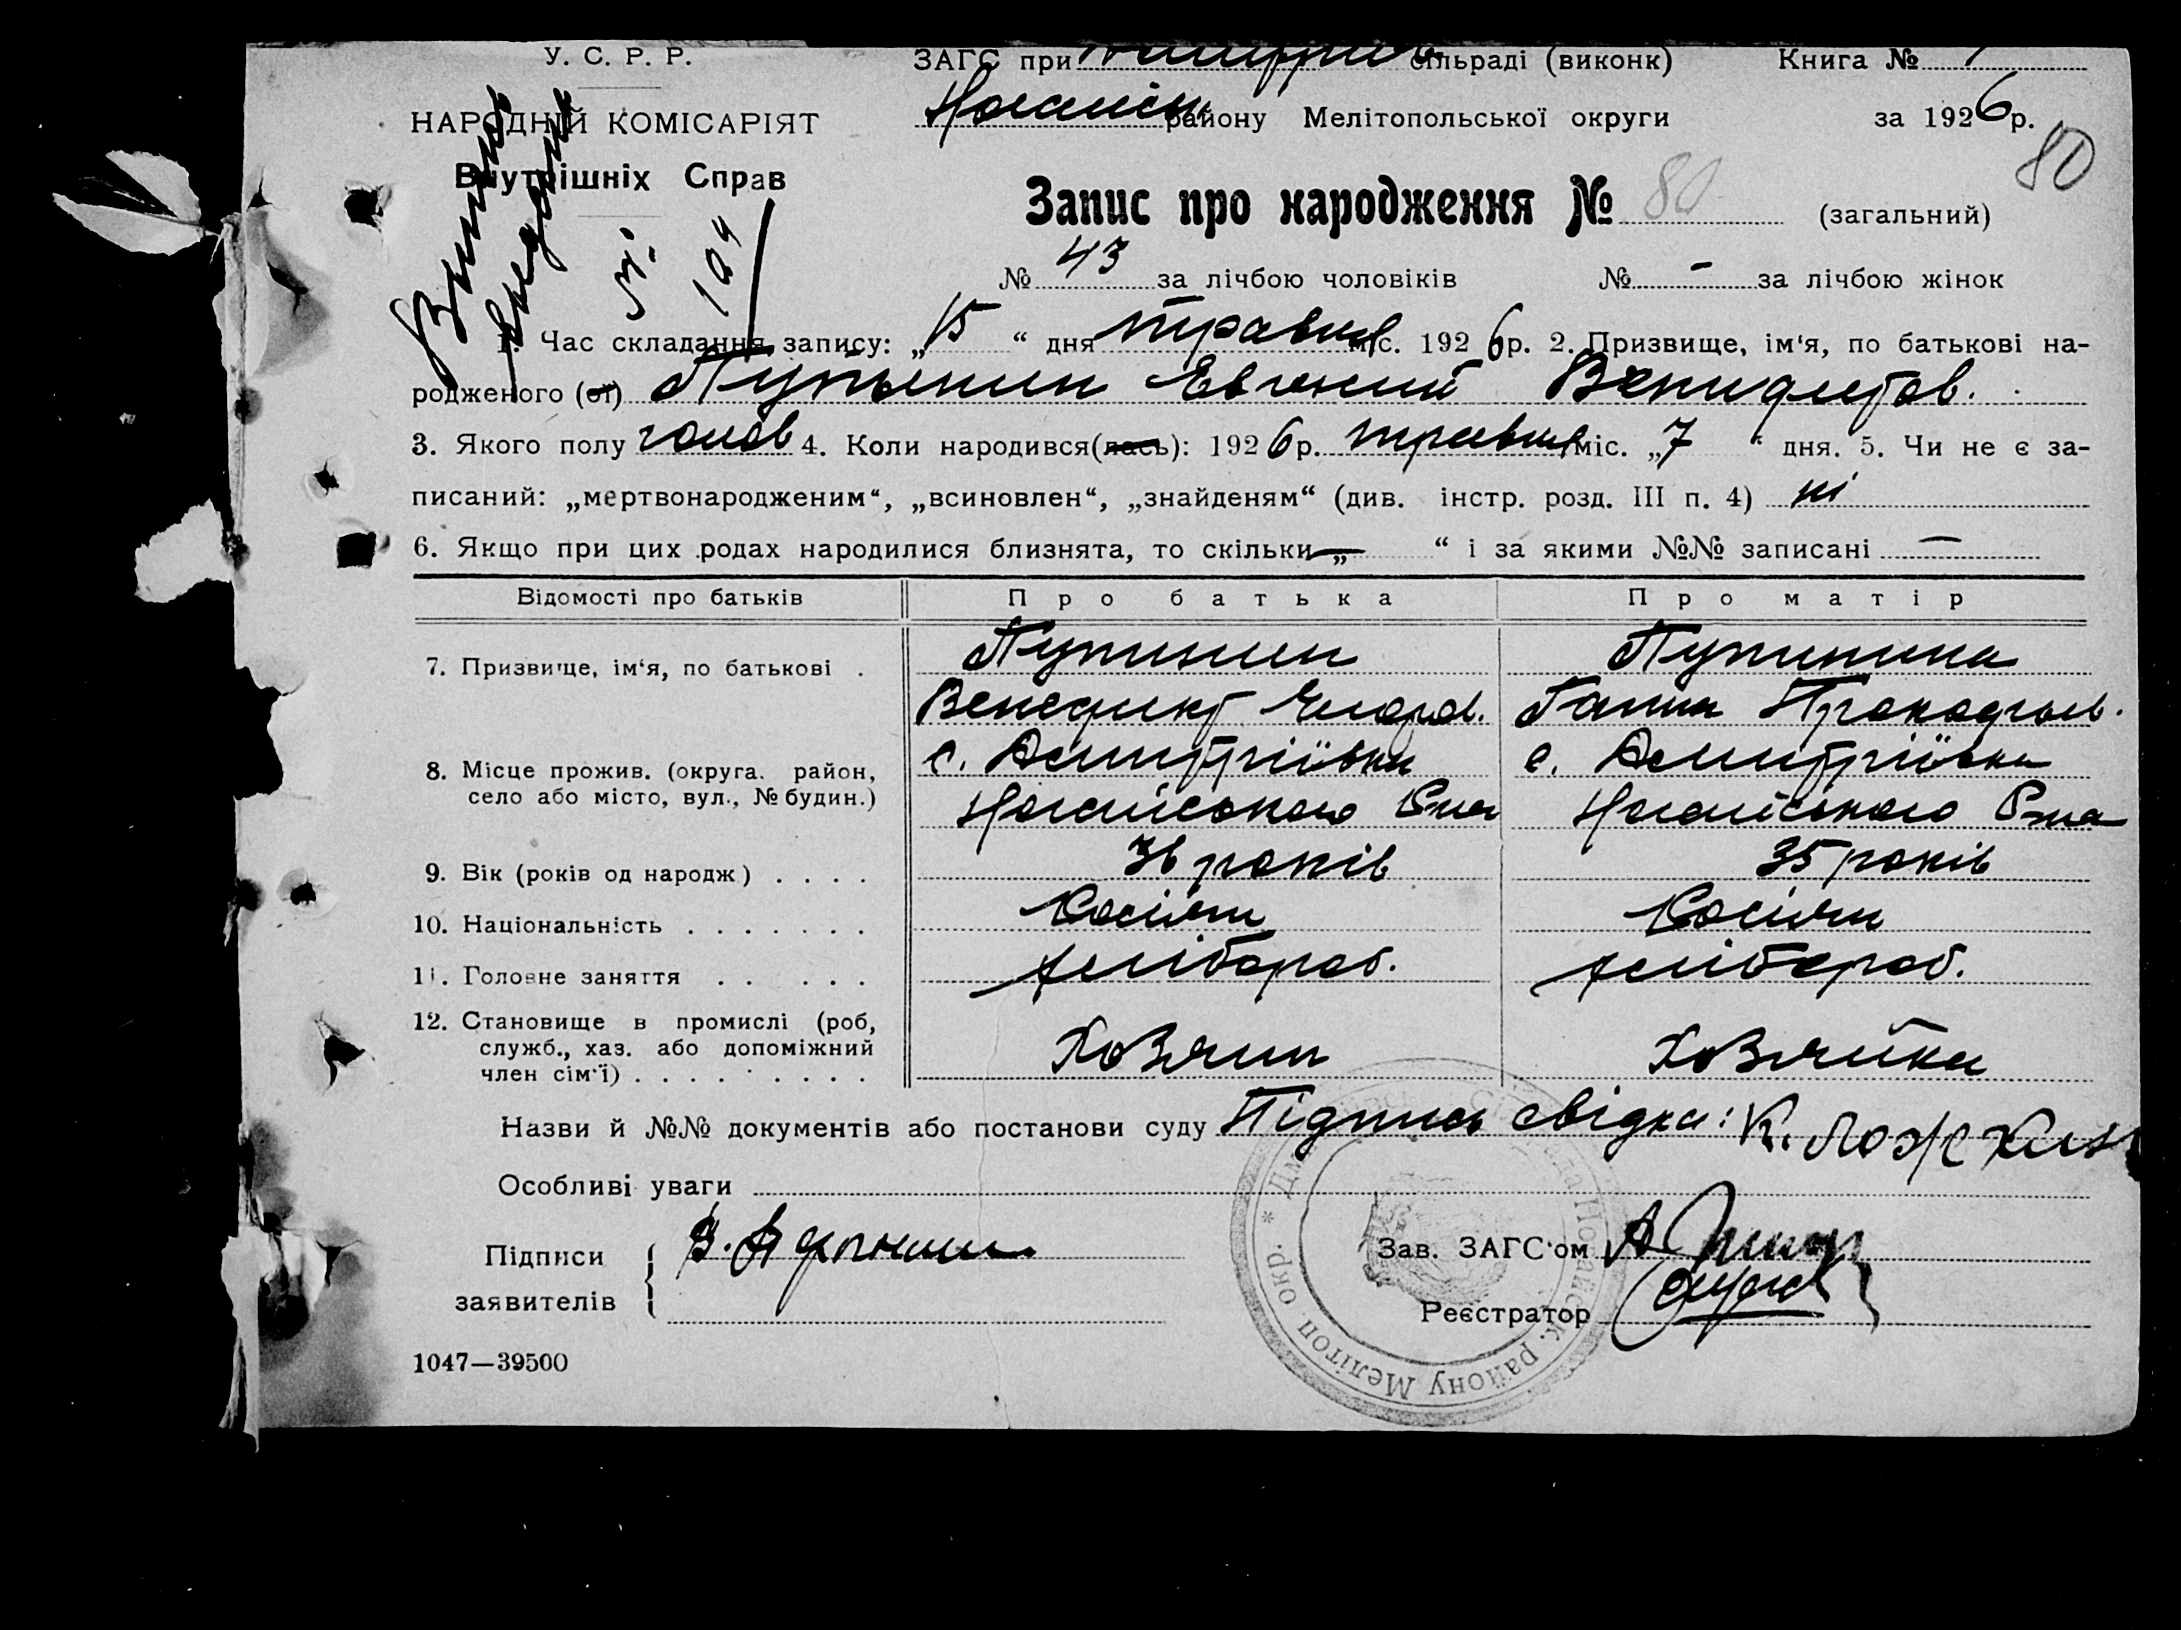 У. С. Р. Р.
ЗАГС при сільраді (виконк) Книга №
НАРОДНІЙ КОМІСАРІЯТ
Ногайськ. району Мелітопольської округи за 1926 р.
Внутрішніх Справ
80
Запис про народження № 80 (загальний)
№ 43 за лічбою чоловіків № — за лічбою жінок
1. Час складання запису: „15“ дня травня міс. 1926 р. 2. Призвище, ім‘я, по батькові на-
родженого (ої) Евгений
3. Якого полу чолов 4. Коли народився(лась): 1926 р. травня міс. „7“ дня. 5. Чи не є за-
писаний: „мертвонародженим“, „всиновлен“, „знайденям“ (див. інстр. розд. III п. 4) ні
6. Якщо при цих родах народилися близнята, то скільки „—“ і за якими №№ записані —
Відомості про батьків Про батька Про матір
7. Призвище, ім‘я, по батькові . Пупинин Пупинина
Венедикт Ганна
8. Місце прожив. (округа. район, с. Дмитріївка с. Дмитріївка
село або місто, вул., № будин.) Ногайського Р-на Ногайського Р-на
9. Вік (років од народж) . . . . 36 років 35 років
10. Національність . . . . . . . Росіян Росіян
11. Головне заняття . . . . . хлібороб. хлібороб.
12. Становище в промислі (роб,
служб., хаз. або допоміжний Хозяин Хозяйка
член сім‘ї) . . . . . . . . .
Назви й №№ документів або постанови суду Підпись свідка: К. Ложкин
Особливі уваги
Підписи
заявителів
Зав. ЗАГС‘ом
Реєстратор
Ногайськ. району Мелітоп. окр. *
1047—39500